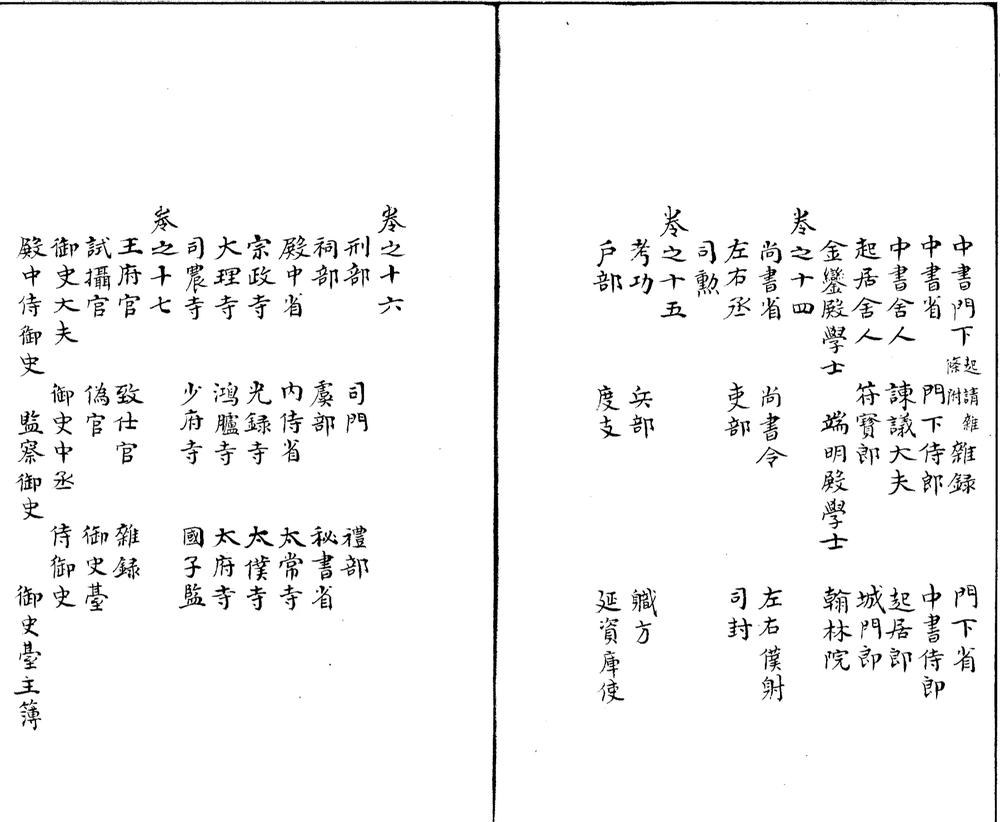 中書門下起請雜條附雜録 門下省
中書省 門下侍郎 中書侍郎
中書舍人 諫議大夫 起居郎
起居舍人 符寳郎 城門郎
金鑾殿學士 端明殿學士 翰林院
卷之十四
尚書省 尚書令 左右僕射
左右丞 吏部 司封
司勲
卷之十五
考功 兵部 職方
戶部 度支 延資庫使
卷之十六
刑部 司門 禮部
祠部 虞部 秘書省
殿中省 内侍省 太常寺
宗政寺 光録寺 太僕寺
大理寺 鴻臚寺 太府寺
司農寺 少府寺 國子監
卷之十七
王府官 致仕官 雜録
試攝官 偽官 御史臺
御史大夫 御史中丞 侍御史
殿中侍御史 監察御史 御史臺主簿